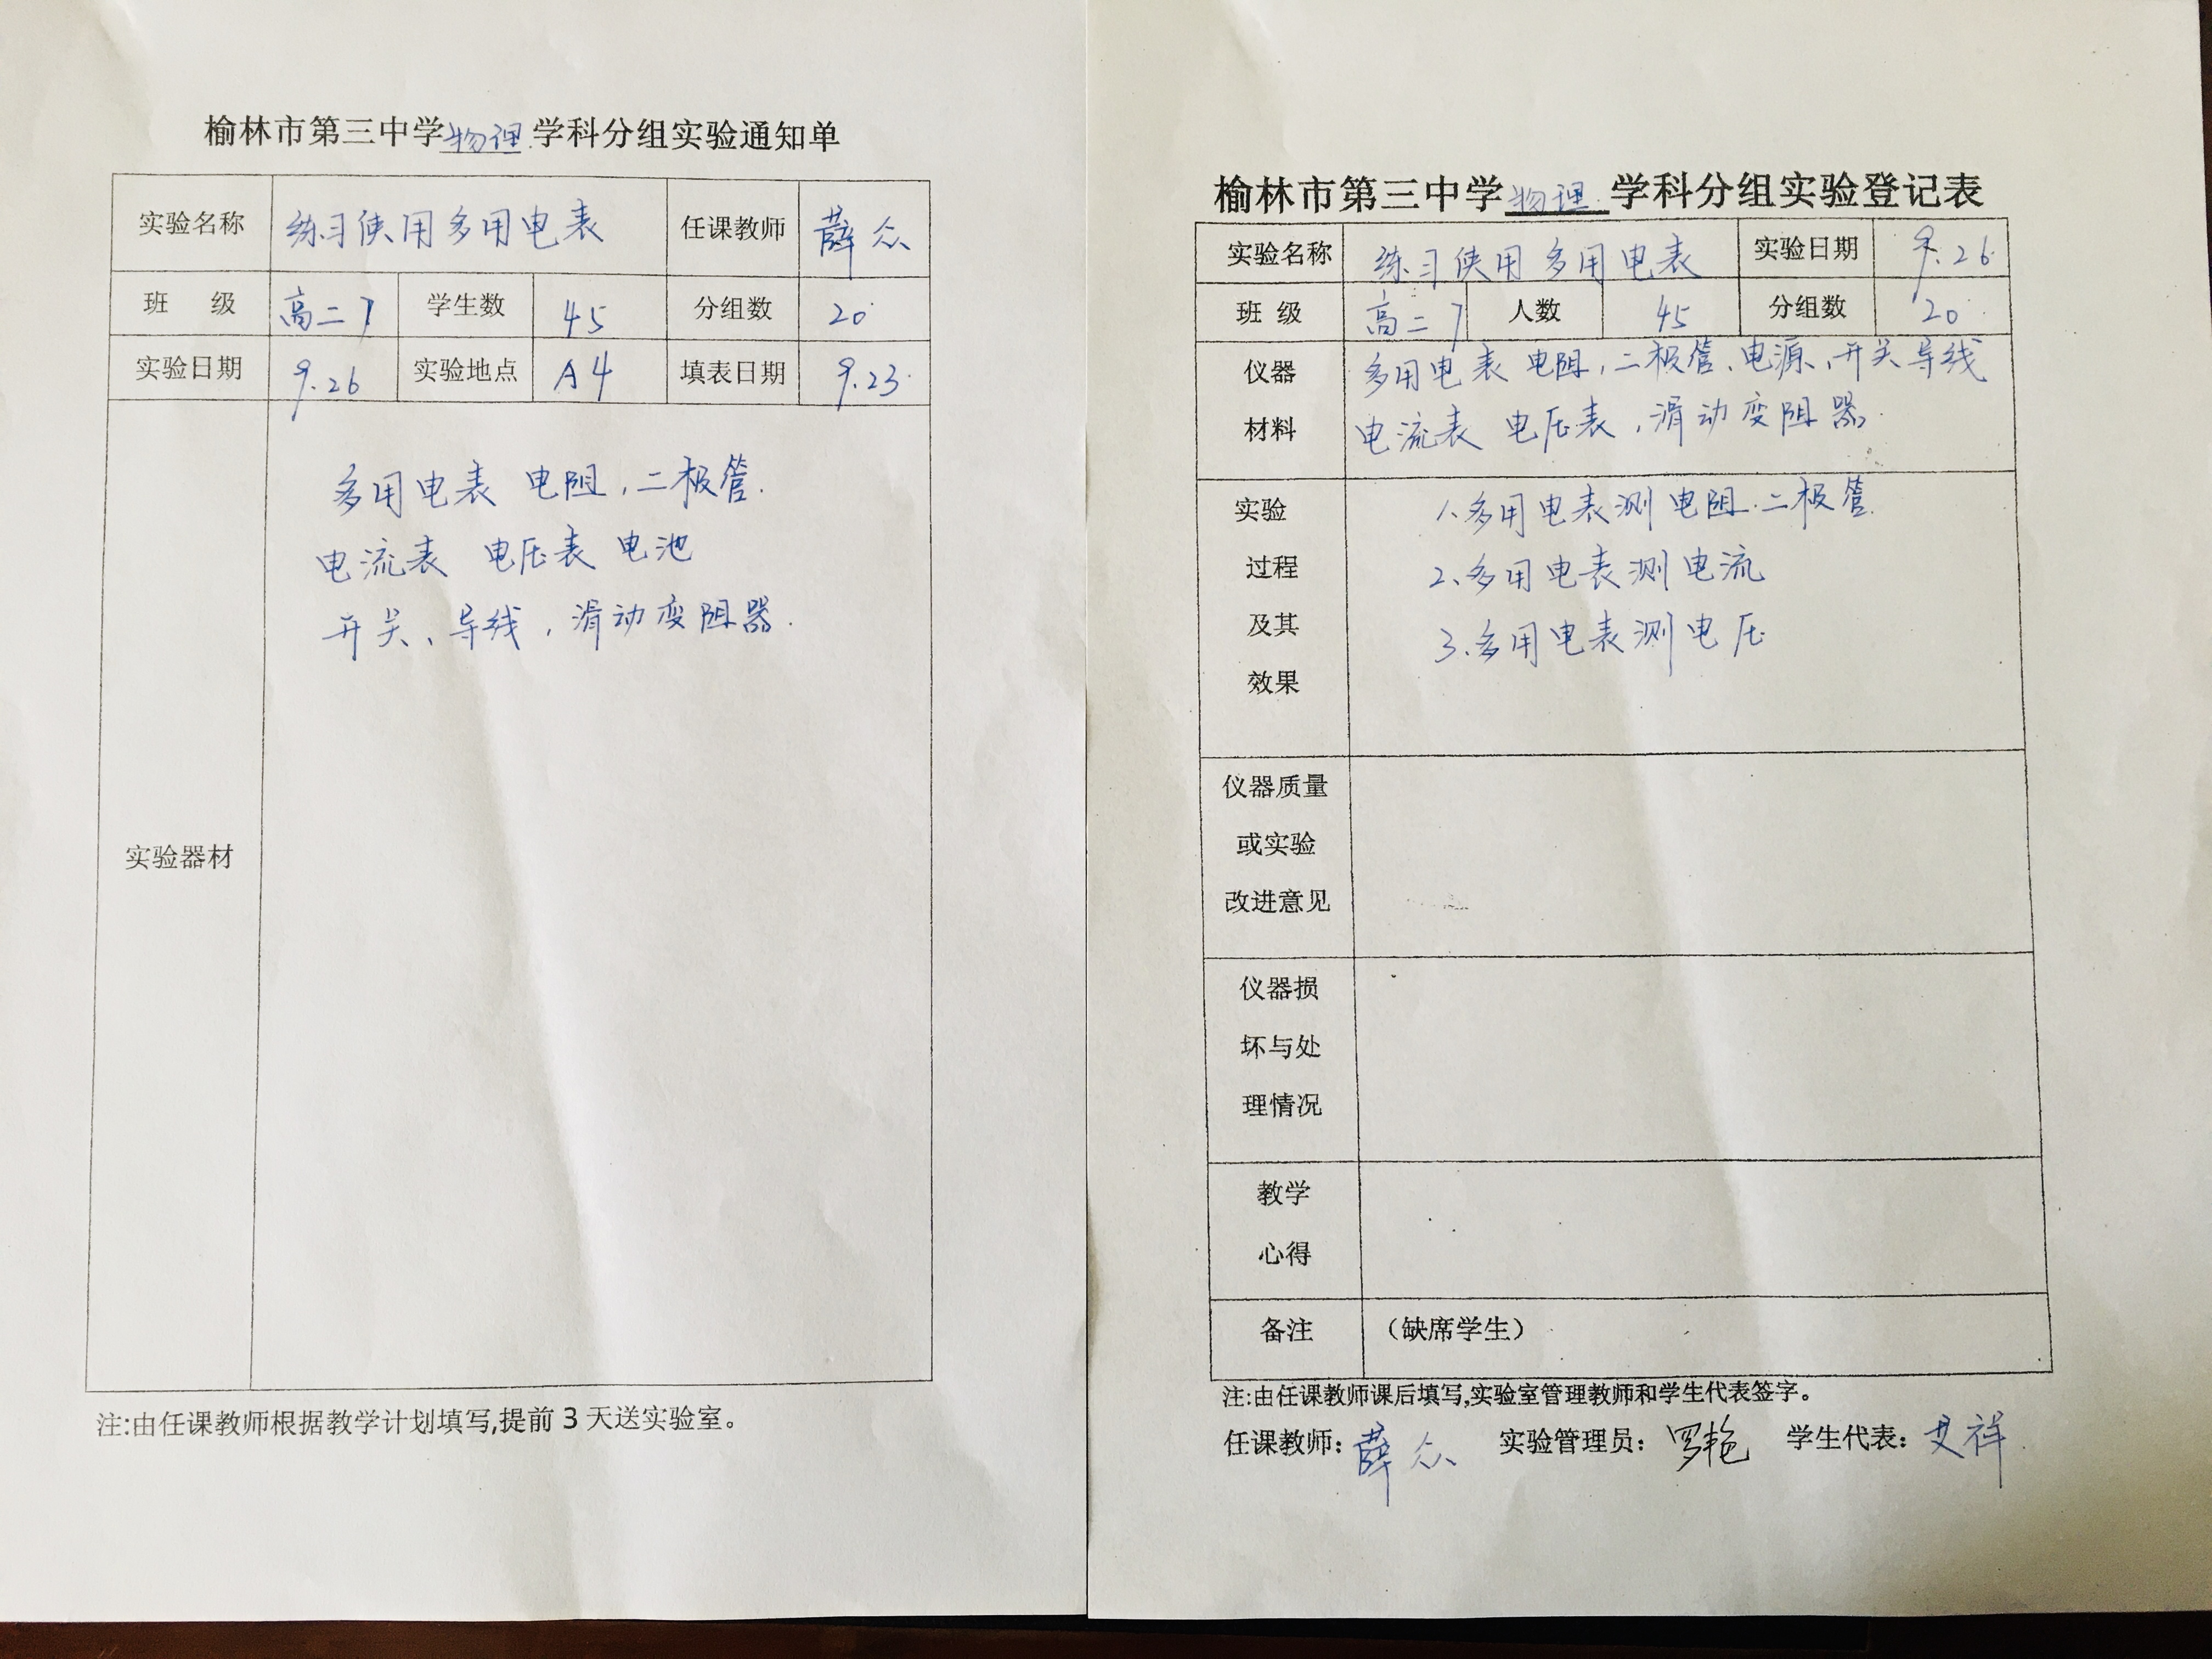 榆林市第三中学物理学科分组实验通知单
实验名称 练习使用多用电表 任课教师 薛众
班 级 高二7 学生数 45 分组数 20
实验日期 9.26 实验地点 A4 填表日期 9.23.
多用电表 电阻,二极管.
电流表 电压表 电池
开关、导线,滑动变阻器.
实验器材
注:由任课教师根据教学计划填写,提前3天送实验室。
榆林市第三中学物理学科分组实验登记表
实验名称 练习使用多用电表 实验日期 9.26.
班 级 高二7 人数 45 分组数 20.
仪器 多用电表 电阻,二极管、电源、开关导线
材料 电流表 电压表,滑动变阻器.
实验 1.多用电表测电阻.二极管.
过程 2、多用电表测电流
及其 3、多用电表测电压
效果
仪器质量
或实验
改进意见
仪器损
坏与处
理情况
教学
心得
备注 (缺席学生)
注:由任课教师课后填写,实验室管理教师和学生代表签字。
任课教师:薛众 实验管理员:罗艳 学生代表:艾祥